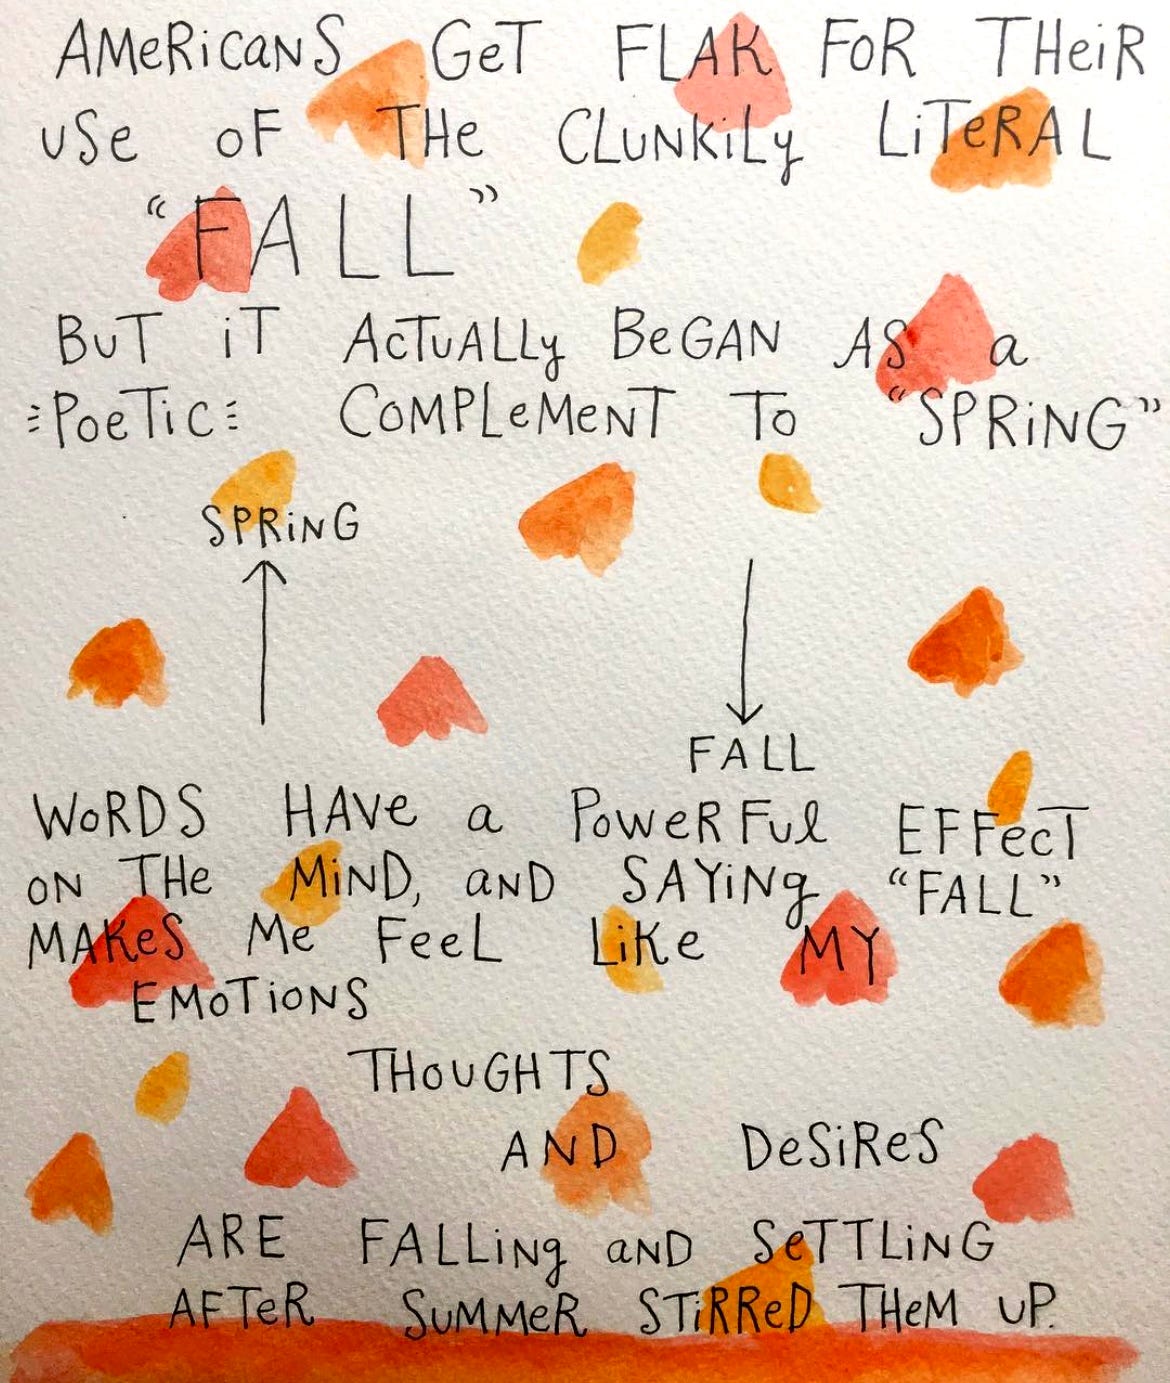 AMeRiCaNS GeT FLAK FoR THeiR
uSe oF THe CLuNKiLy LiTeRAL
“FALL”
BuT iT AcTuALLy BeGAN AS a
PoeTiC CoMPLeMeNT To “SPRiNG”
SPRiNG
FALL
WoRDS HAVe a PoweRFul EFFecT
ON THe MiND, aND SAYiNg “FALL”
MAKeS Me FeeL LiKe MY
EMoTioNS
THouGHTS
AND DeSiReS
ARE FALLiNg aND SeTTLiNG
AFTeR SuMMeR STiRReD THeM uP.